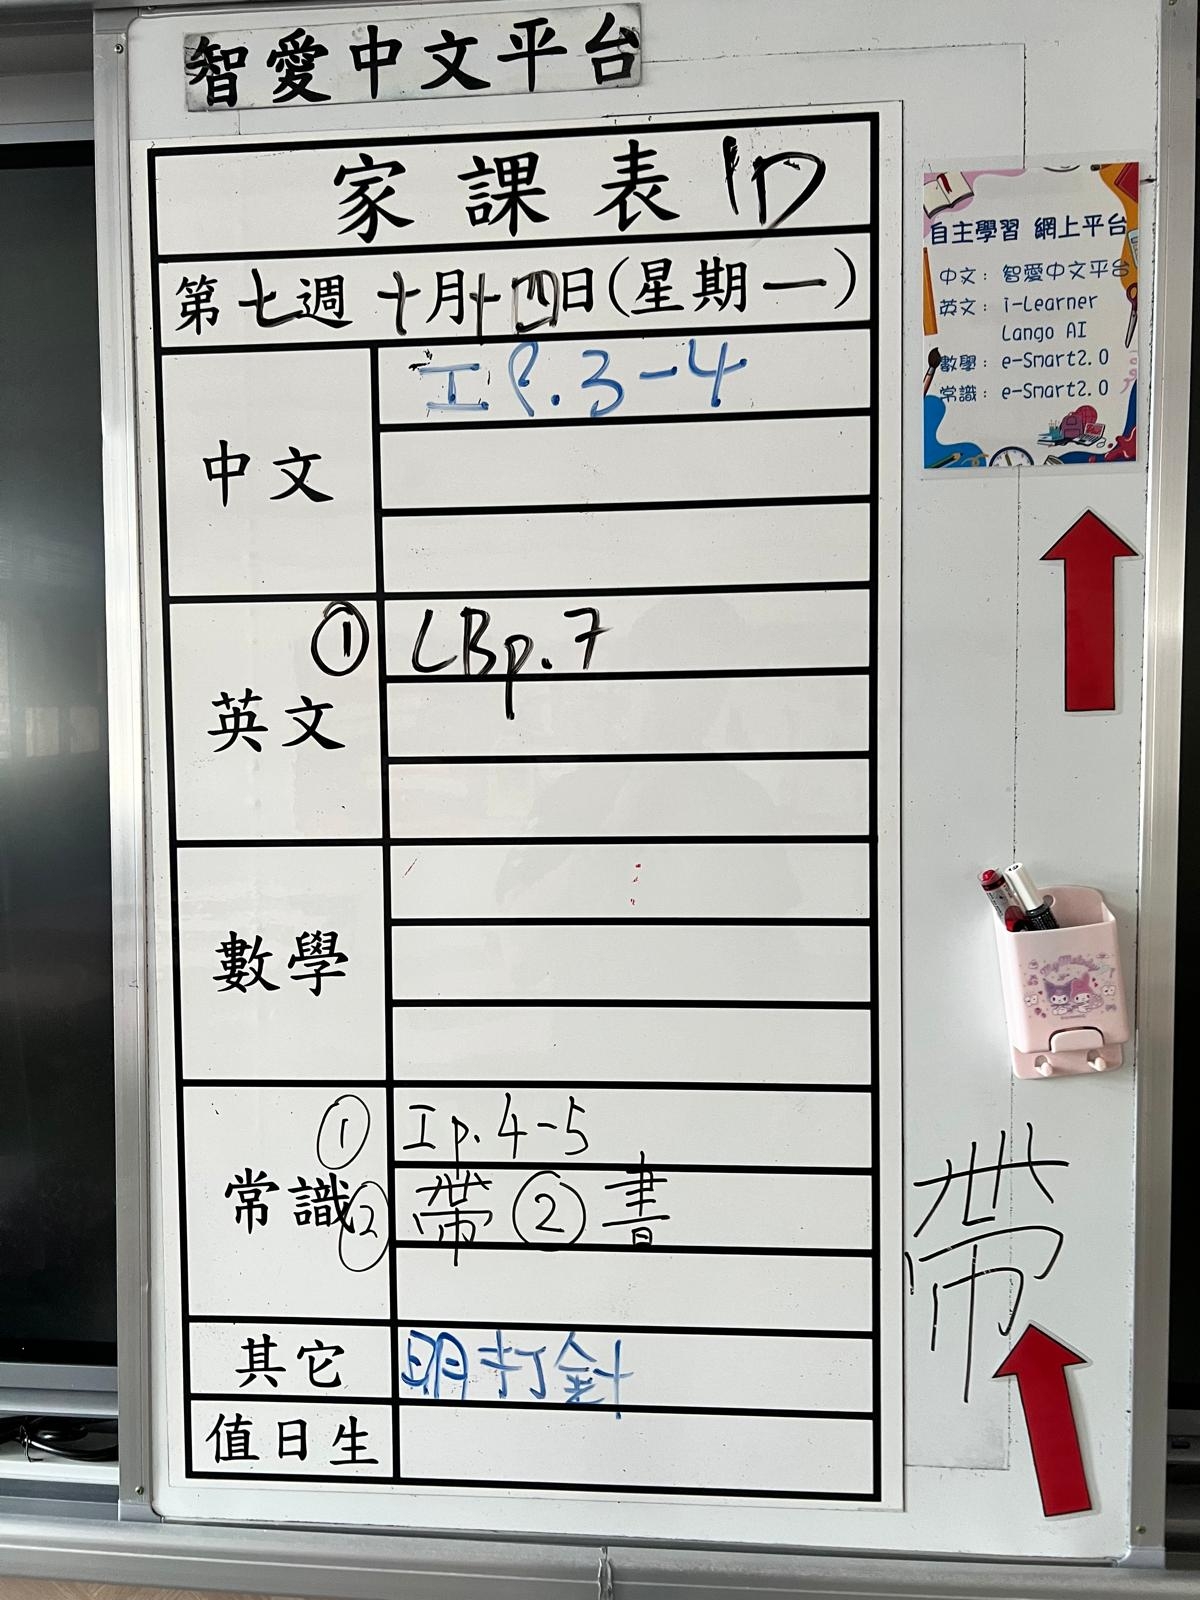 智愛中文平台
家課表 1D
第七週 十月十四日(星期一)
中文
工 P.3-4
英文
① LBp.7
數學
常識
① 工p.4-5
② 帶②書
其它
明打針
值日生
自主學習 網上平台
中文：智愛中文平台
英文：i-Learner
Lango AI
數學：e-Smart2.0
常識：e-Smart2.0
My Melody
帶